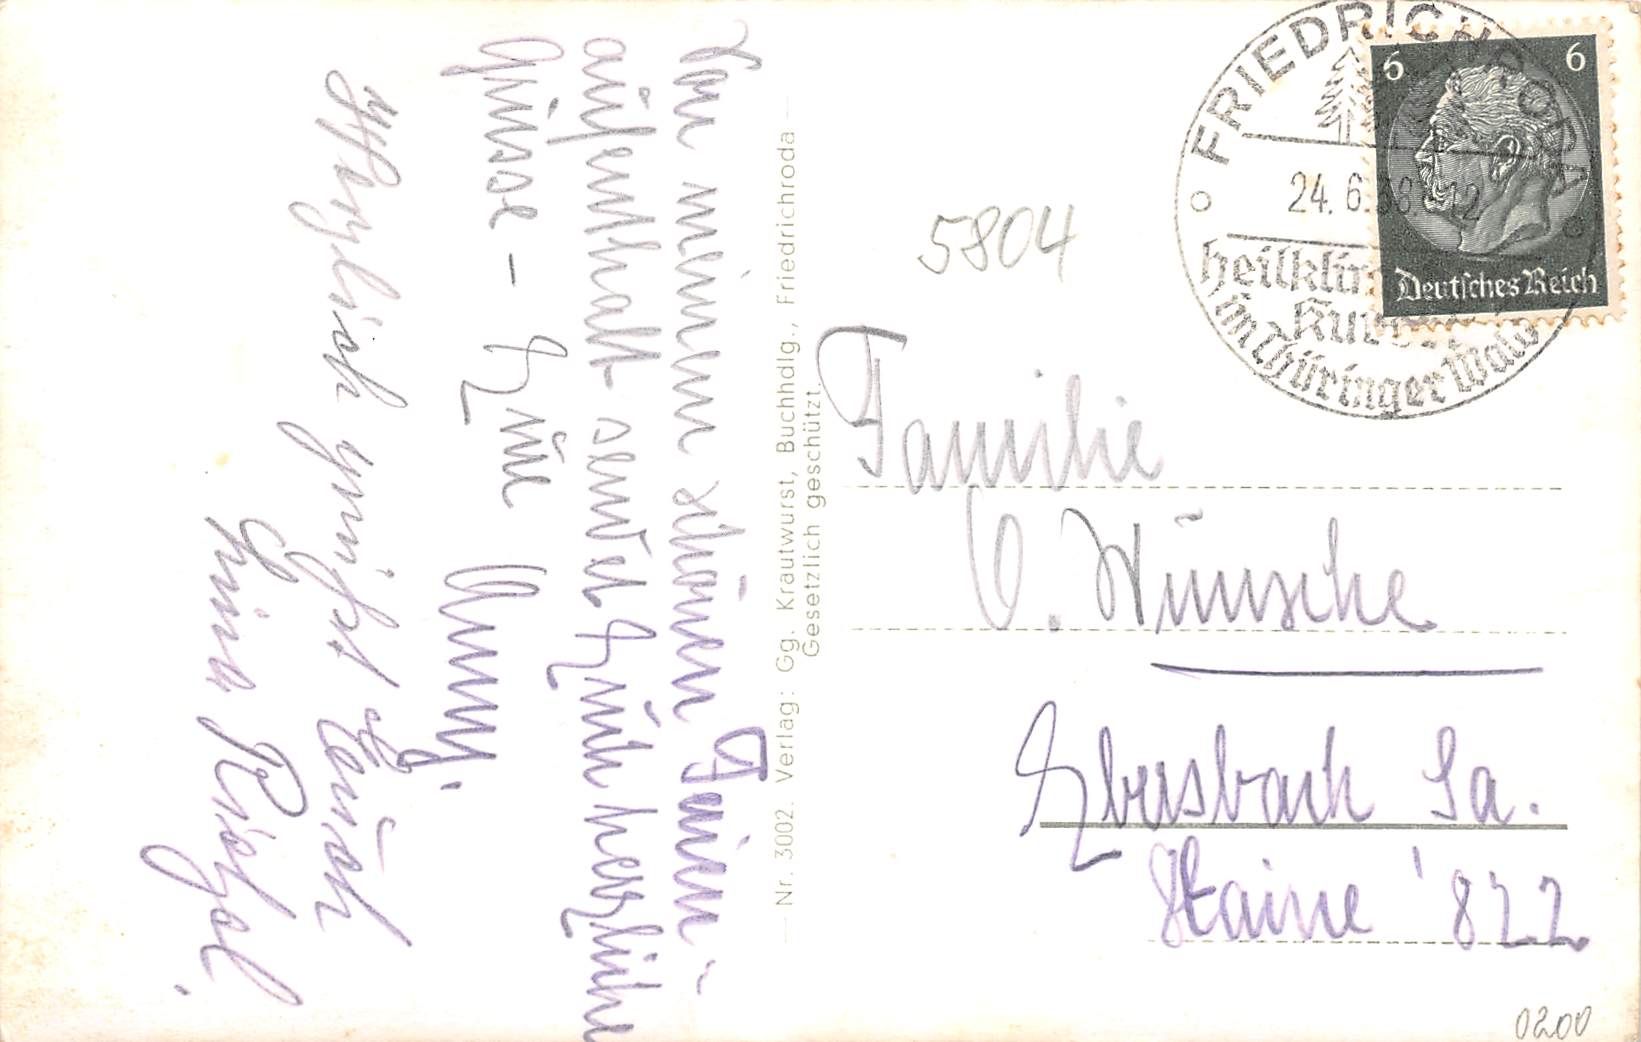 Von meinem schönen Ferien-
aufenthalt sendet Euch herzliche
Grüsse – Eure Anny.
Herzlich grüßt Euch
Lina
Nr. 3002. Verlag: Gg. Krautwurst, Buchhdlg., Friedrichroda
Gesetzlich geschützt.
5804
FRIEDRICHRODA
24.6.36.-12
Im Thüringer Wald
6 6
Deutsches Reich
Familie
O. Wünsche
Ebersbach Sa.
Haine 822.
0200